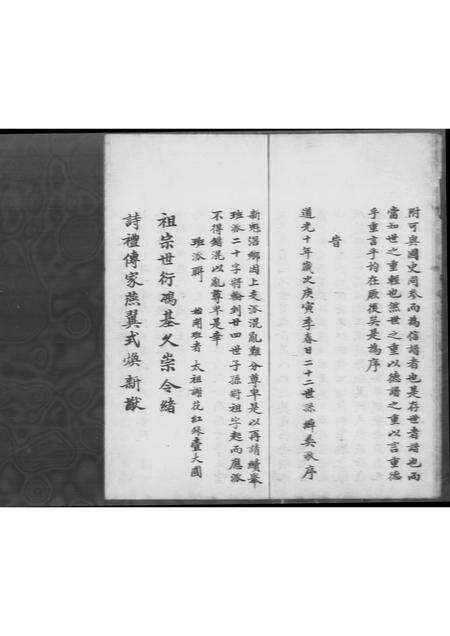 附可與國史同參而為信譜者也是存世者譜也而
當知世之重輕也然世之重以德譜之重以言重德
乎重言乎均在厥後矣是為序
旹
道光十年歲次庚寅季春日二十二世孫 序
新 鄉因上支派混亂難分尊卑是以再請續舉
班派二十字將輪到廿四世子孫時祖字起而應派
不得錯混以亂尊卑是幸
班派聯 始用班者太祖謝花紅銀壹大圓
祖宗世衍碼基久崇令緒
詩禮傳家燕翼式煥新猷